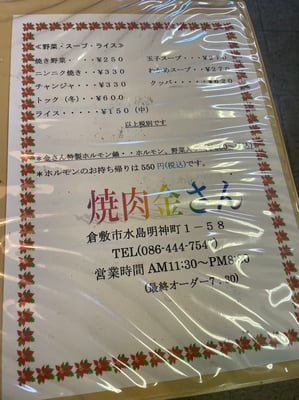 ≪野菜・スープ・ライス≫
焼き野菜・・・¥２５０ 玉子スープ・・¥２７０
ニンニク焼き・・¥３３０ わかめスープ・・¥２７０
チャンジャ・・・¥３３０ クッパ・・・・・¥６２０
トック（冬）・・¥６００
ライス・・・・¥１５０（中）
以上税別です
＊金さん特製ホルモン鍋・・ホルモン、野菜入
＊ホルモンのお持ち帰りは 550 円(税込)です。
焼肉金さん
倉敷市水島明神町１－５８
TEL(086-444-754
営業時間 AM11:30～PM8:
(最終オーダー7:30)